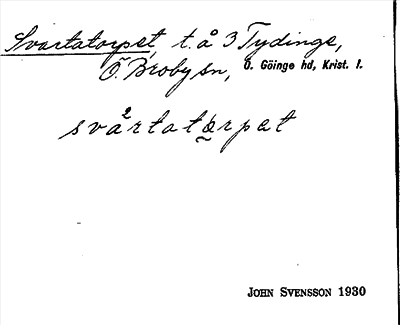 Svartatorpet, t. å 3 Tydinge,
Ö. Broby sn, Ö. Göinge hd, Krist. l.
svártatœ̰rpet
JOHN SVENSSON 1930